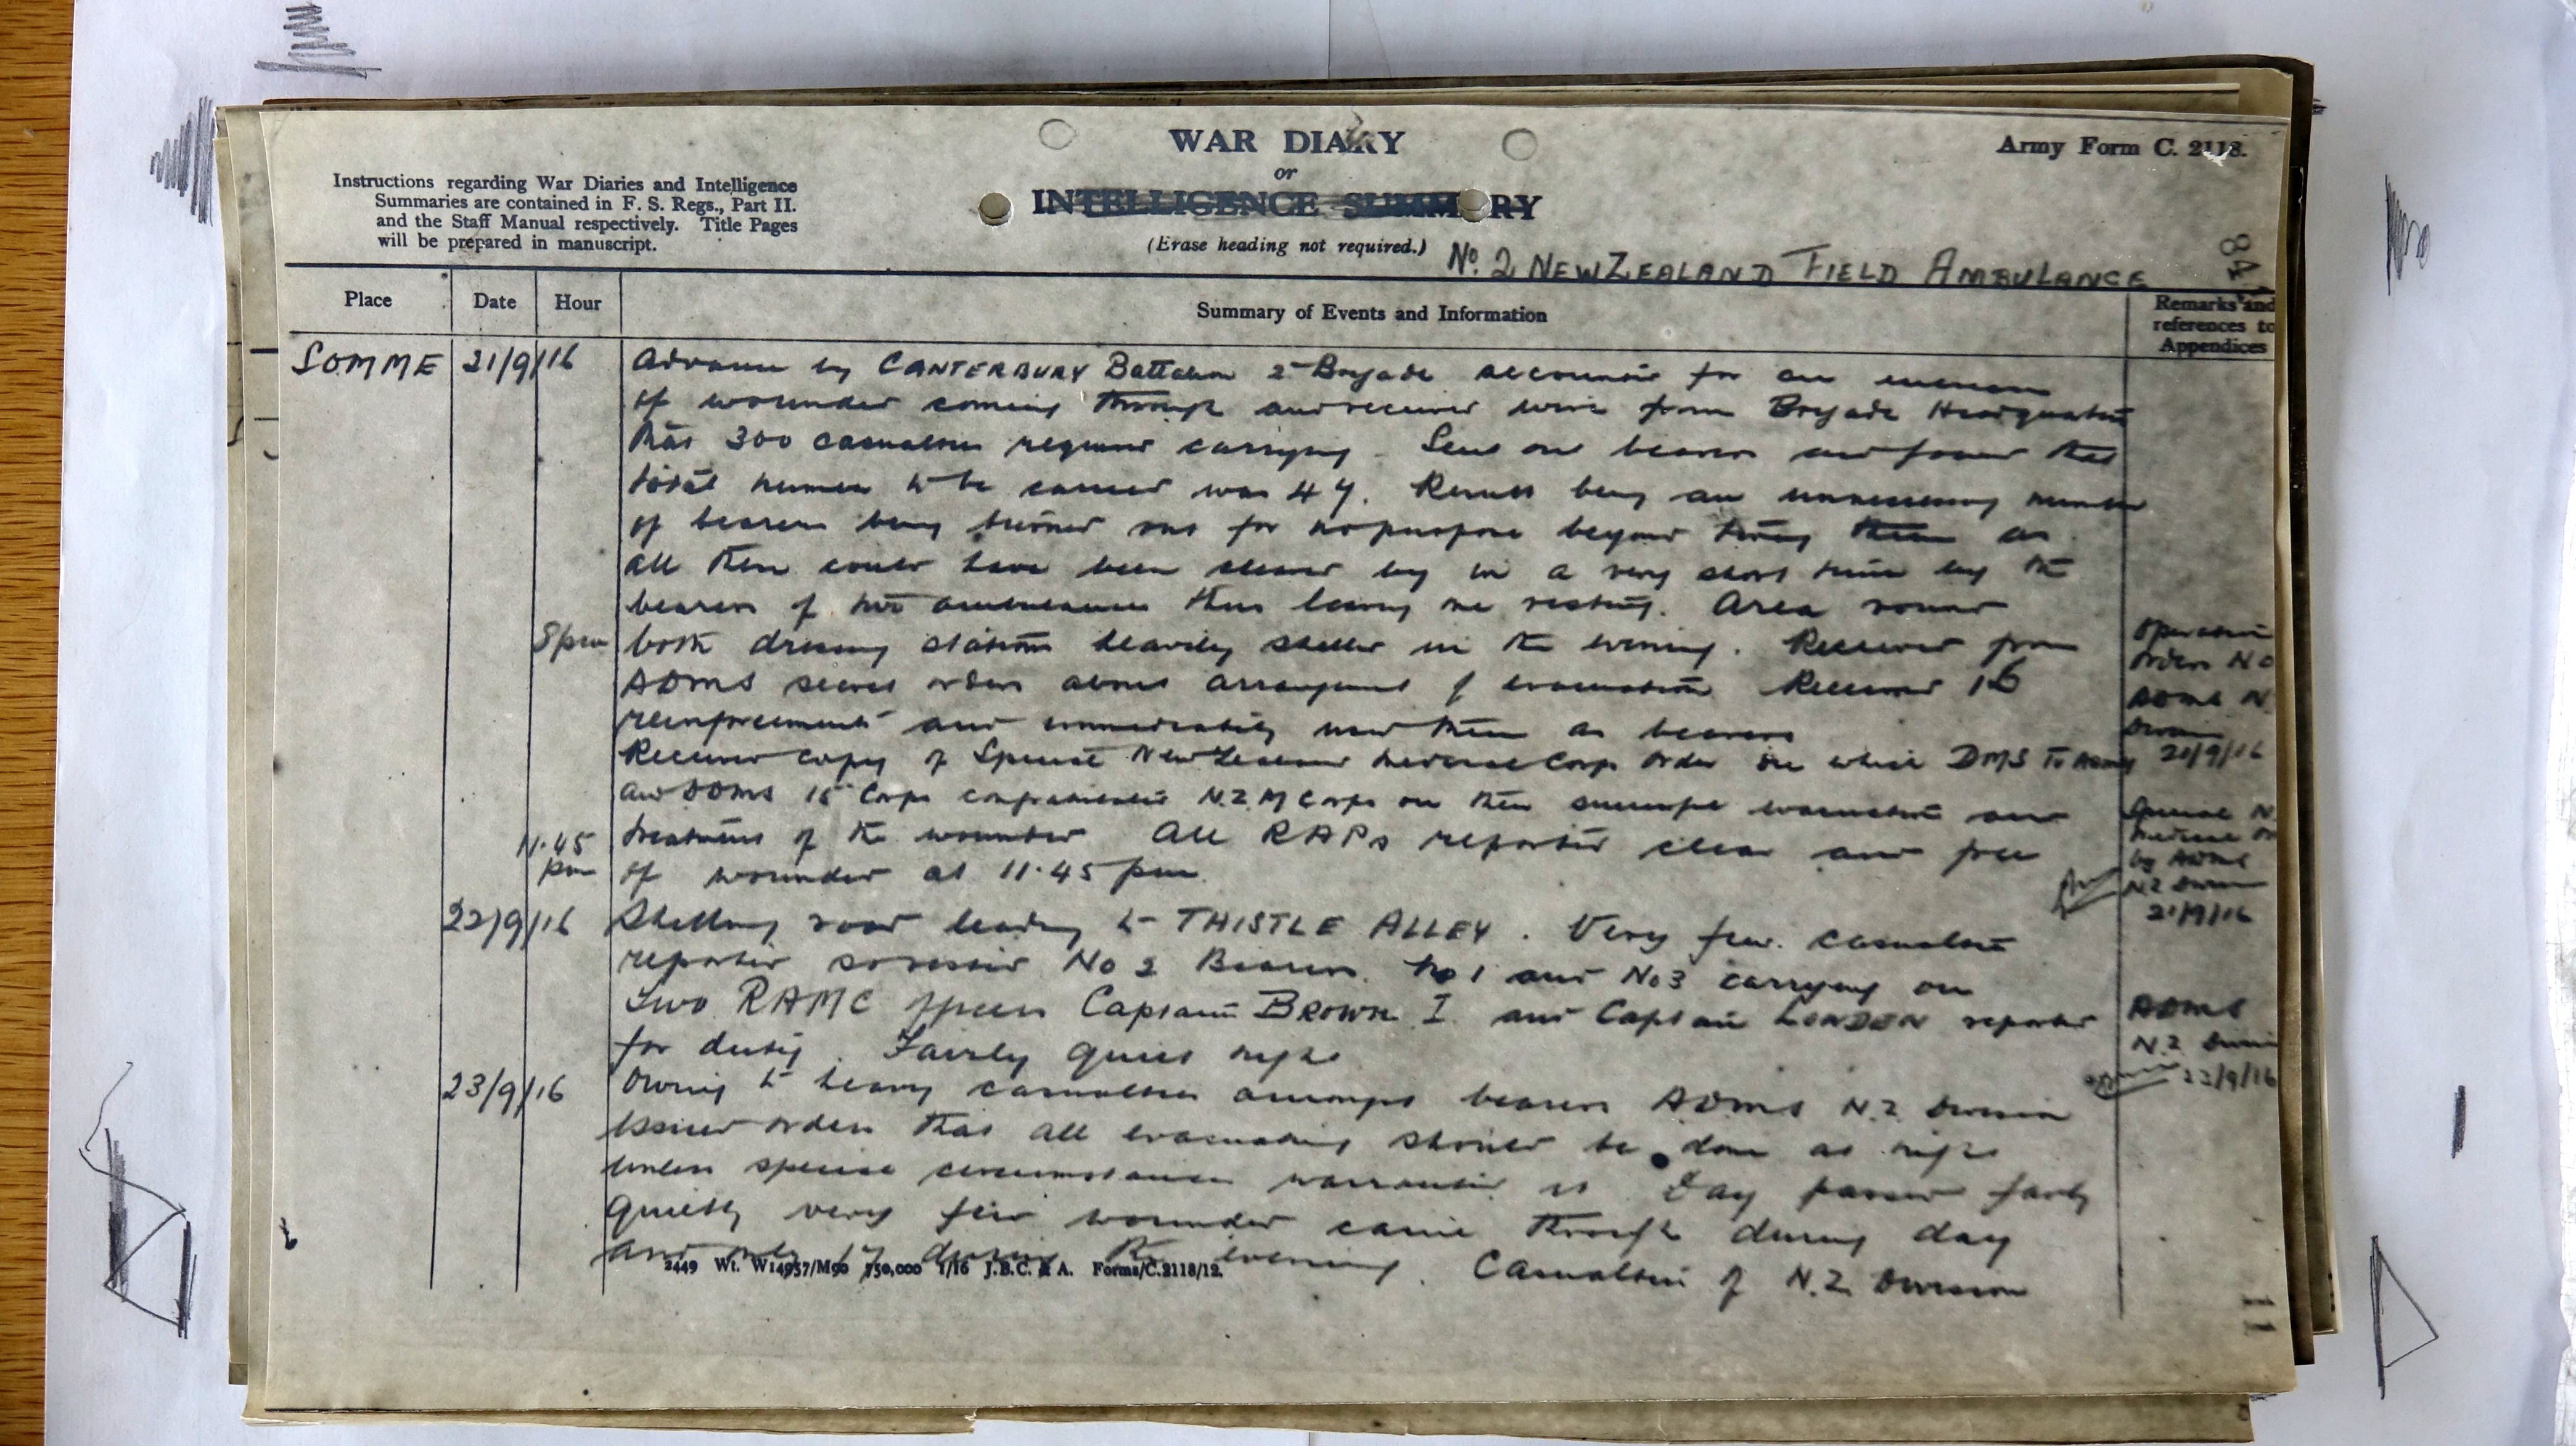 WAR DIARY
or
INTELLIGENCE SUMMARY
(Erase heading not required.)
Army Form C. 2118.
Instructions regarding War Diaries and Intelligence
Summaries are contained in F. S. Regs., Part II.
and the Staff Manual respectively. Title Pages
will be prepared in manuscript.
No. 2 NEW ZEALAND FIELD AMBULANCE
84
Place Date Hour Summary of Events and Information Remarks and references to Appendices
SOMME 21/9/16 Advance by CANTERBURY Battalion 2nd Brigade accounted for an increase
of wounded coming through and received wire from Brigade Headquarters
that 300 casualties required carrying. Sent out bearers and found that
total number to be carried was 47. Result being an unnecessary number
of bearers being turned out for no purpose beyond tiring them as
all these could have been cleared by in a very short time by the
bearers of two ambulances thus leaving one resting. Area round
8pm both dressing stations heavily shelled in the evening. Received from
ADMS secret orders about arrangement of evacuation Received 16
reinforcements and immediately used them as bearers
Received copy of Special New Zealand Medical Corps Order in which DMS IV Army
and DDMS 15 Corps congratulated N.Z.M Corps on their successful evacuation and
treatment of the wounded All RAPs reported clear and free
11.45 pm of wounded at 11.45 pm
Operation
Orders No
ADMS N.
Division
21/9/16
Special N
Medical Or
by ADMS
N.Z Division
21/9/16
22/9/16 Shelling road leading to THISTLE ALLEY. Very few casualties
reported No 2 Bearers. No 1 and No 3 carrying on
Two RAMC officers Captain BROWN I. and Captain LONDON reported
for duty. Fairly quiet night
ADMS
N.Z Division
22/9/16
23/9/16 Owing to heavy casualties amongst bearers ADMS N.Z Division
issued orders that all evacuating should be done at night
unless special circumstances warranted it Day passed fairly
quietly very few wounded came through during day
and only 17 during the evening. Casualties of N.Z Division
2449 Wt. W14957/M90 750,000 1/16 J.B.C. & A. Forms/C.2118/12.